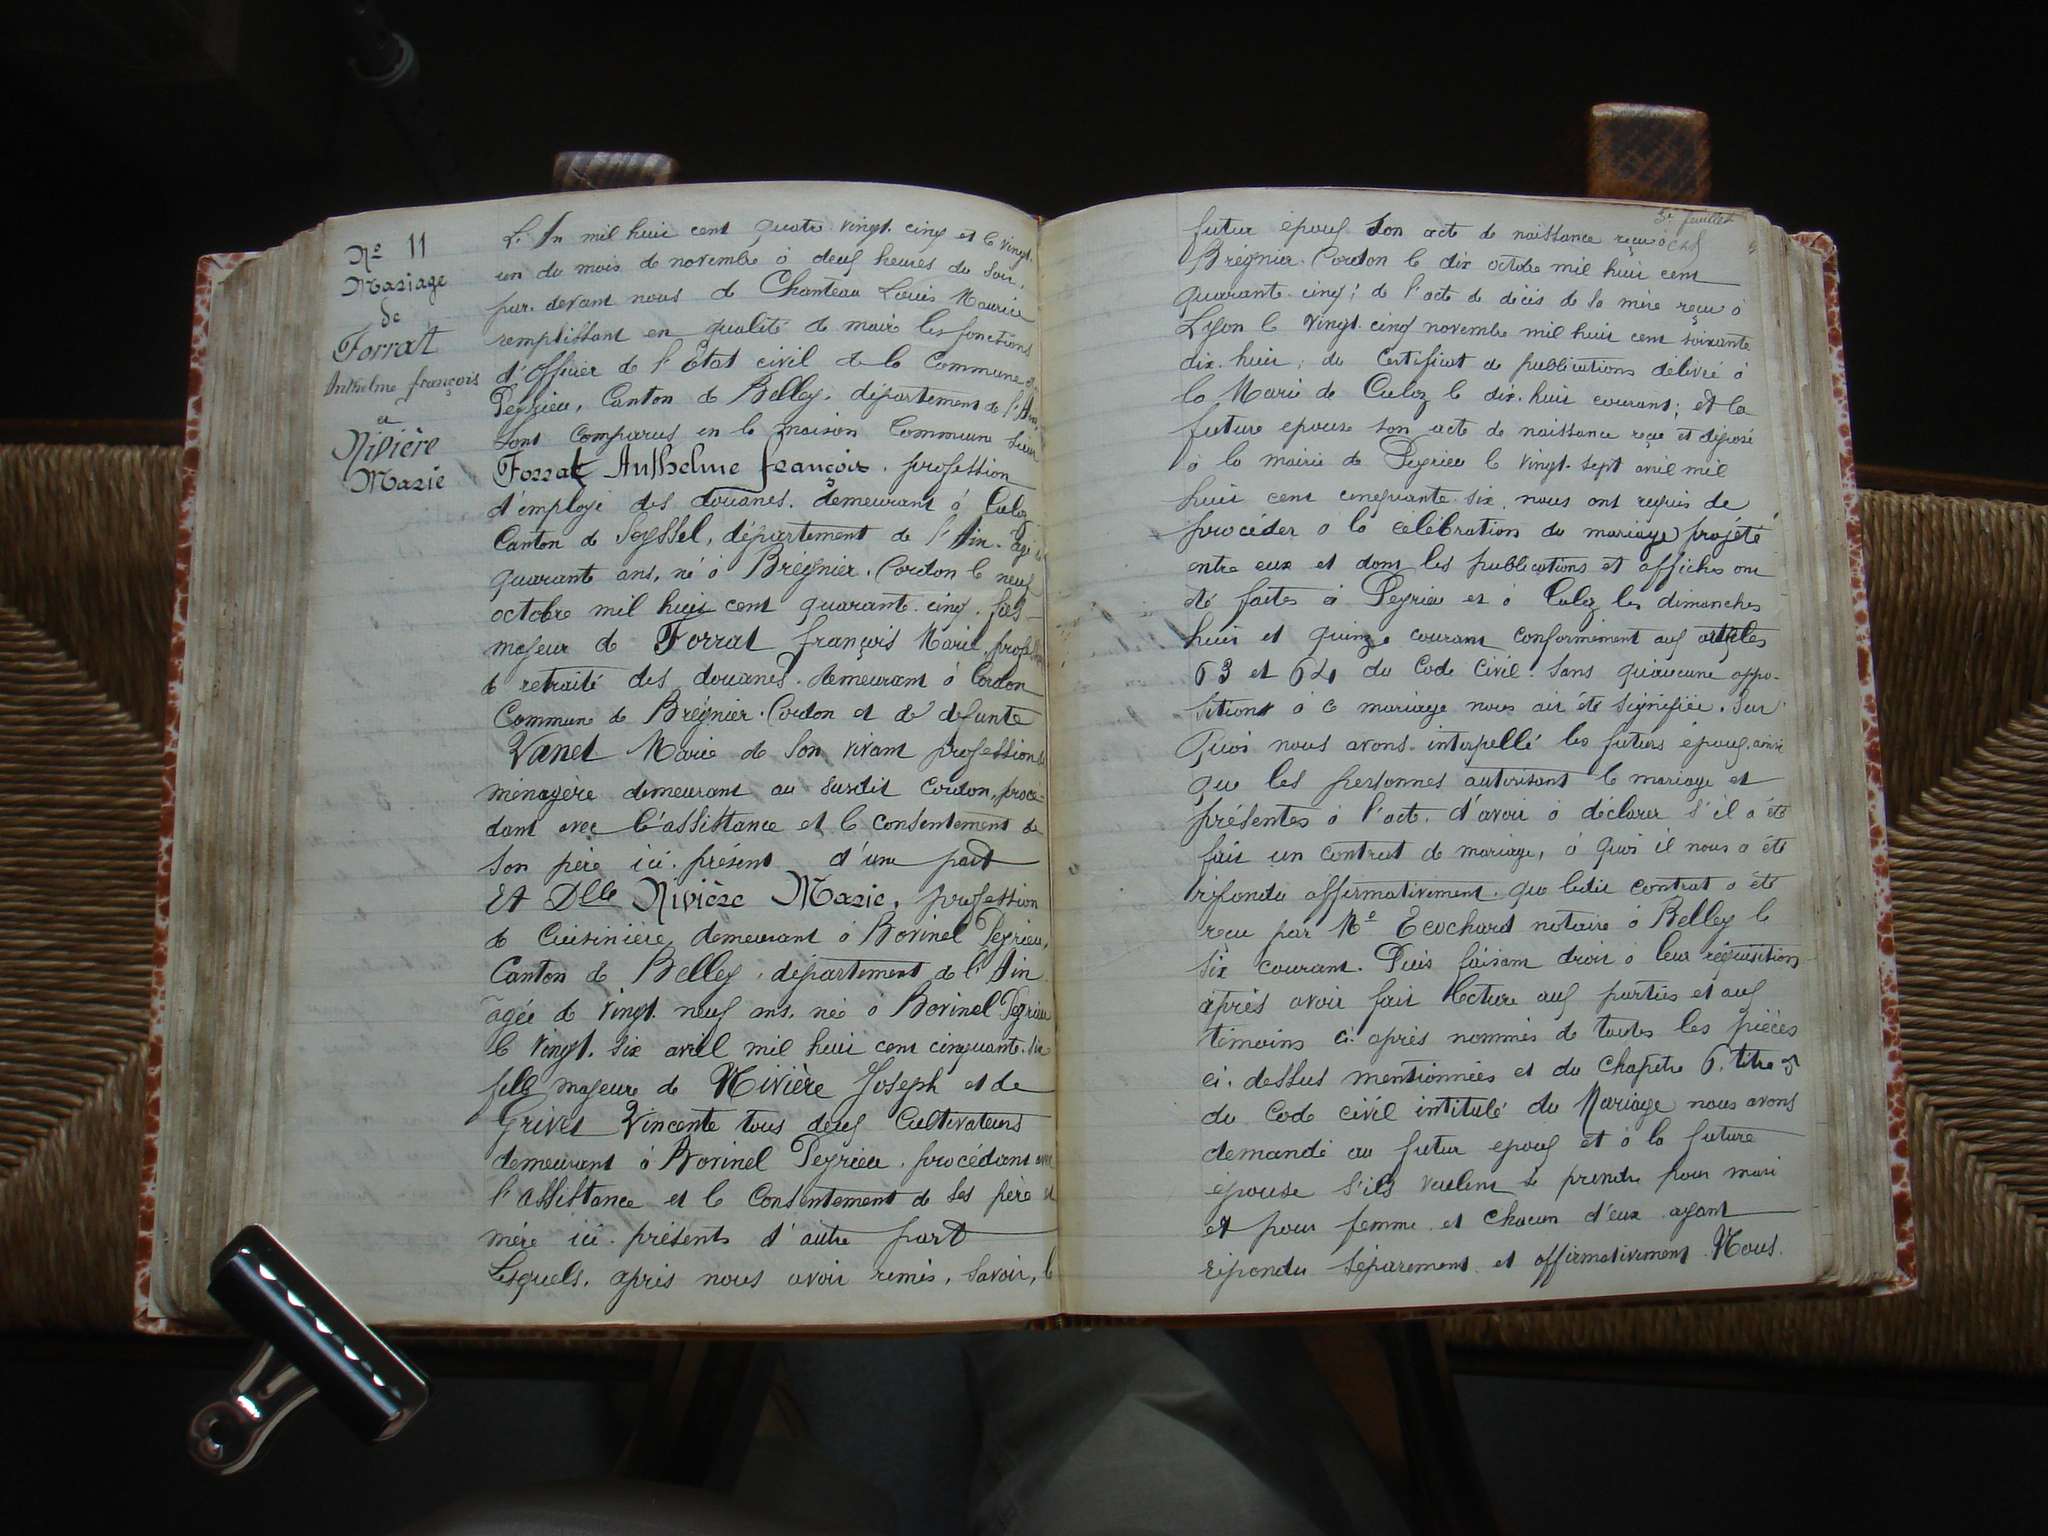 No 11
Mariage
de
Forrat
Anthelme françois
et
Rivière
Marie
L'An mil huit cent quatre vingt. cinq et le vingt.
un du mois de novembre à deux heures du soir,
par. devant nous de Chanteau Louis Maurice
remplissant en qualité de maire les fonctions
d'Officier de l'Etat civil de la Commune de
Peyrieu, Canton de Belley, département de l'Ain,
sont comparus en la maison Commune Sieur
Forrat Anthelme françois. profession
d'employé des douanes. demeurant à Culoz
Canton de Seyssel, département de l'Ain. âgé de
quarante ans, né à Brégnier. Cordon le neuf
octobre mil huit cent quarante. cinq. fils
majeur de Forrat françois Marie, profession
de retraité des douanes. demeurant à Cordon
Commune de Brégnier. Cordon et de defunte
Vanet Marie de son vivant profession de
ménagère demeurant au susdit Cordon, procé-
dant avec l'assistance et le consentement de
son père ici. présent d'une part
Et Dlle Rivière Marie, profession
de Cuisinière demeurant à Bovinel Peyrieu,
Canton de Belley, département de l'Ain
âgée de vingt. neuf ans. née à Bovinel Peyrieu
le vingt. six avril mil huit cent cinquante. six
fille majeure de Rivière Joseph et de
Grivet Vincente tous deux Cultivateurs
demeurant à Bovinel Peyrieu. procédant avec
l'assistance et le Consentement de ses père et
mère ici. présents d'autre part
Lesquels, après nous avoir remis, savoir, le
3e feuillet
futur époux son acte de naissance reçu à
Brégnier. Cordon le dix octobre mil huit cent
quarante. cinq; de l'acte de décès de sa mère reçu à
Lyon le vingt. cinq novembre mil huit cent soixante
dix. huit; du Certificat de publications délivré à
la Mairie de Culoz le dix. huit courant; et la
future epouse son acte de naissance reçu et déposé
à la mairie de Peyrieu le vingt. sept avril mil
huit cent cinquante six. nous ont requis de
procéder à la célébration du mariage projeté
entre eux et dont les publications et affiches ont
été faites à Peyrieu et à Culoz les dimanches
huit et quinze courant conformément aux articles
63 et 64 du Code Civil. Sans qu'aucune oppo-
sitions à ce mariage nous ait été signifiée. Sur
Quoi nous avons. interpellé les futurs époux, ainsi
que les personnes autorisant le mariage et
présentes à l'acte, d'avoir à déclarer s'il a été
fait un contrat de mariage, à quoi il nous a été
répondu affirmativement. que ledit contrat a été
reçu par Me Ecochard notaire à Belley le
six courant. Puis faisant droit à leur réquisition
après avoir fait lecture aux parties et aux
témoins ci. après nommés de toutes les pièces
ci. dessus mentionnées et du Chapitre 6. titre 5
du Code civil intitulé du Mariage nous avons
demandé au futur epoux et à la future
épouse s'ils veulent se prendre pour mari
et pour femme et chacun d'eux ayant
répondu séparement et affirmativement. Nous.